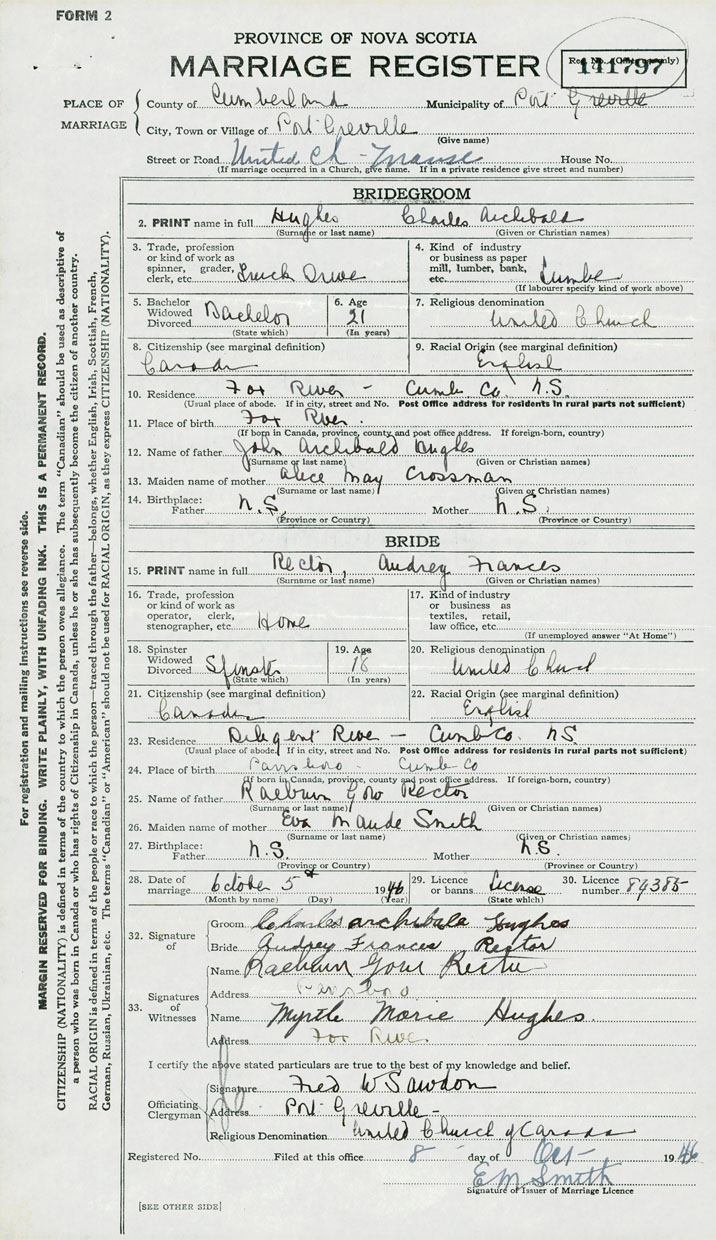 FORM 2
PROVINCE OF NOVA SCOTIA
MARRIAGE REGISTER
141797
PLACE OF MARRIAGE
County of Cumberland Municipality of Port Greville
City, Town or Village of Port Greville
(Give name)
Street or Road United Ch - Manse House No.
(If marriage occurred in a Church, give name. If in a private residence give street and number)
BRIDEGROOM
2. PRINT name in full Hughes Charles Archibald
(Surname or last name) (Given or Christian names)
3. Trade, profession or kind of work as spinner, grader, clerk, etc. Truck Drive
4. Kind of industry or business as paper mill, lumber, bank, etc. Lumbe
(If labourer specify kind of work above)
5. Bachelor Widowed Divorced Bachelor (State which)
6. Age 21 (In years)
7. Religious denomination United Church
8. Citizenship (see marginal definition) Canada
9. Racial Origin (see marginal definition) English
10. Residence Fox River - Cumb Co. N.S.
(Usual place of abode. If in city, street and No. Post Office address for residents in rural parts not sufficient)
11. Place of birth Fox River.
(If born in Canada, province, county and post office address. If foreign-born, country)
12. Name of father John Archibald Hughes
(Surname or last name) (Given or Christian names)
13. Maiden name of mother Alice May Crossman
(Surname or last name) (Given or Christian names)
14. Birthplace: Father N.S. Mother N.S.
(Province or Country) (Province or Country)
BRIDE
15. PRINT name in full Rector, Audrey Frances
(Surname or last name) (Given or Christian names)
16. Trade, profession or kind of work as operator, clerk, stenographer, etc. Home
17. Kind of industry or business as textiles, retail, law office, etc.
(If unemployed answer "At Home")
18. Spinster Widowed Divorced Spinster (State which)
19. Age 18 (In years)
20. Religious denomination United Church
21. Citizenship (see marginal definition) Canada
22. Racial Origin (see marginal definition) English
23. Residence Diligent River - Cumb Co. N.S.
(Usual place of abode. If in city, street and No. Post Office address for residents in rural parts not sufficient)
24. Place of birth Parrsboro. Cumb Co
(If born in Canada, province, county and post office address. If foreign-born, country)
25. Name of father Raeburn Gow Rector
(Surname or last name) (Given or Christian names)
26. Maiden name of mother Eva Maude Smith
(Surname or last name) (Given or Christian names)
27. Birthplace: Father N.S. Mother N.S.
(Province or Country) (Province or Country)
28. Date of marriage October 5th 1946
(Month by name) (Day) (Year)
29. Licence or banns License (State which)
30. Licence number 89385
32. Signature of
Groom Charles Archibald Hughes
Bride Audrey Frances Rector
33. Signatures of Witnesses
Name Raeburn Gow Rector
Address Parrsboro.
Name Myrtle Marie Hughes.
Address Fox River.
I certify the above stated particulars are true to the best of my knowledge and belief.
Officiating Clergyman
Signature Fred W Sawdon
Address Port Greville -
Religious Denomination United Church of Canada
Registered No. Filed at this office 8 day of Oct - 1946
E M Smith
Signature of Issuer of Marriage Licence
[SEE OTHER SIDE]
For registration and mailing instructions see reverse side.
MARGIN RESERVED FOR BINDING. WRITE PLAINLY, WITH UNFADING INK. THIS IS A PERMANENT RECORD.
CITIZENSHIP (NATIONALITY) is defined in terms of the country to which the person owes allegiance. The term "Canadian" should be used as descriptive of
a person who was born in Canada or who has rights of Citizenship in Canada, unless he or she has subsequently become the citizen of another country.
RACIAL ORIGIN is defined in terms of the people or race to which the person—traced through the father—belongs, whether English, Irish, Scottish, French,
German, Russian, Ukrainian, etc. The terms "Canadian" or "American" should not be used for RACIAL ORIGIN, as they express CITIZENSHIP (NATIONALITY).